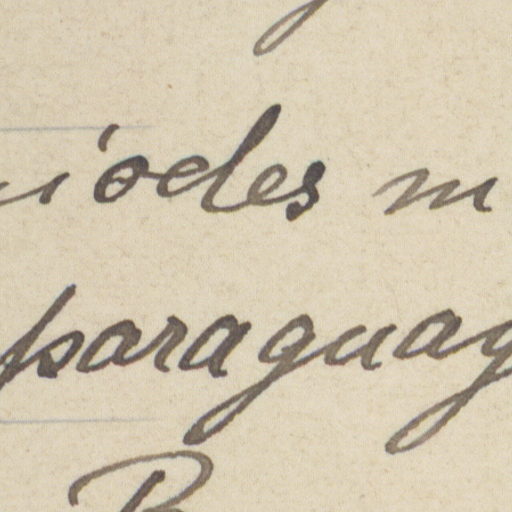 iodes m
paraguay
B